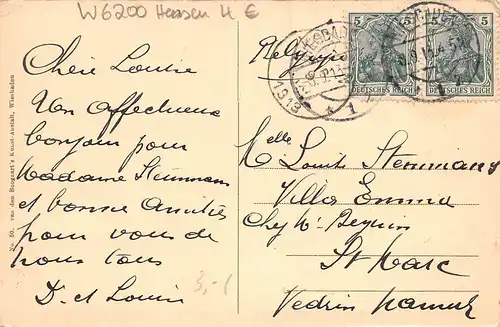 W6200 Hessen 4 €
Chère Louise
Un affectueux
bonjour pour
Madame Stemmans
et bonne Amitiés
pour vous de
nous tous
D. et Louis
3,-
No. 50. van den Boogaart's Kunst-Anstalt, Wiesbaden
1913
1
5 5
5 5
DEUTSCHES REICH
DEUTSCHES REICH
Melle Louise Stemmans
Villa Emma
Chez Mr Beguin
St Marc
Vedrin Namur